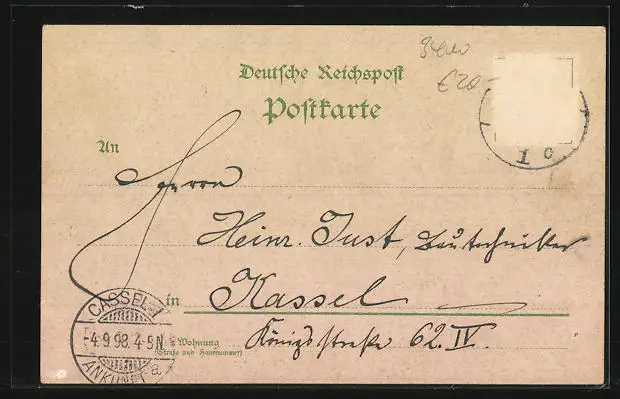 € 20-
Deutsche Reichspost
Postkarte
An
1 c
Herrn
Heinr. Just, Bautechniker
in Kassel
Wohnung
(Straße und Hausnummer)
Königsstraße 62. IV.
CASSEL 1
4.9.98. 4-5N
ANKUNFT a.